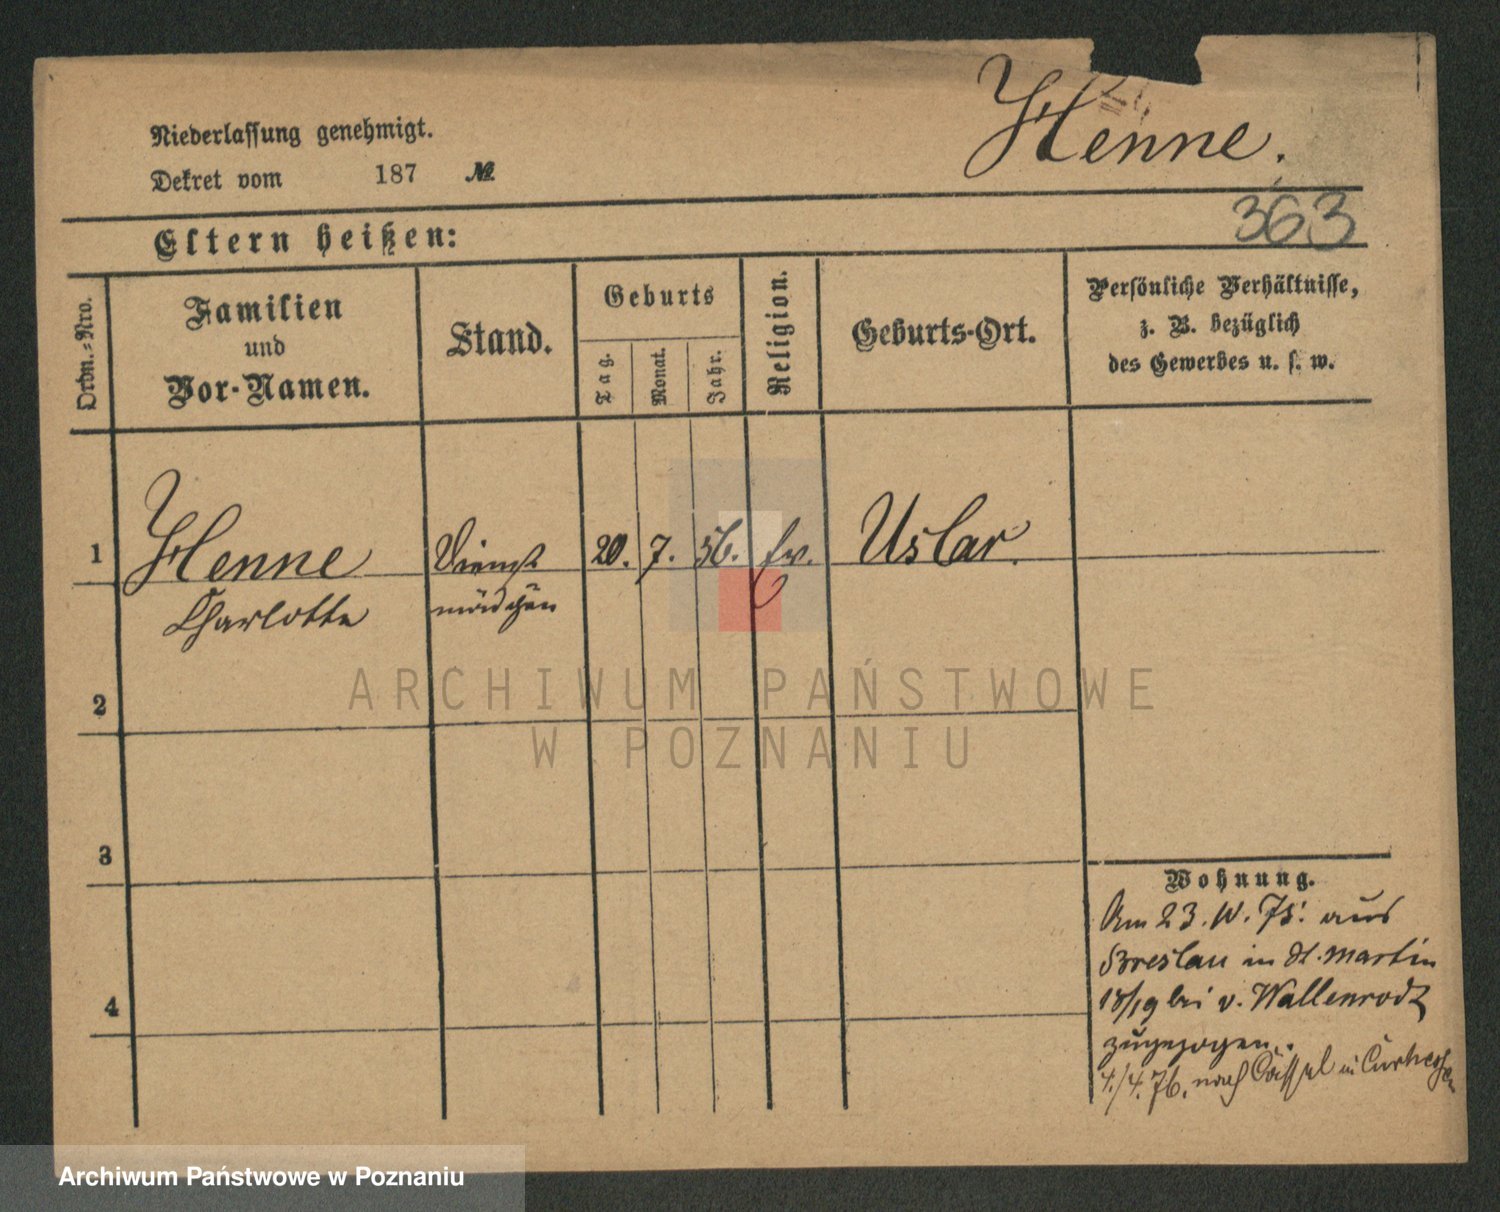 Henne.
Niederlassung genehmigt.
Dekret vom 187 №
363
Eltern heißen:
Ordn.-Nro.
Familien
und
Vor-Namen.
Stand.
Geburts
Tag.
Monat.
Jahr.
Religion.
Geburts-Ort.
Persönliche Verhältnisse,
z. B. bezüglich
des Gewerbes u. s. w.
1 Henne Dienst 20. 7. 56. ev. Uslar.
Charlotte mädchen
ARCHIWUM PAŃSTWOWE
W POZNANIU
2
3
4
Wohnung.
Am 23. IV. 75. aus
Breslau in St. Martin
18/19 bei v. Wallenrodt
zugezogen.
4./4. 76. nach Cassel in Curhessen
Archiwum Państwowe w Poznaniu